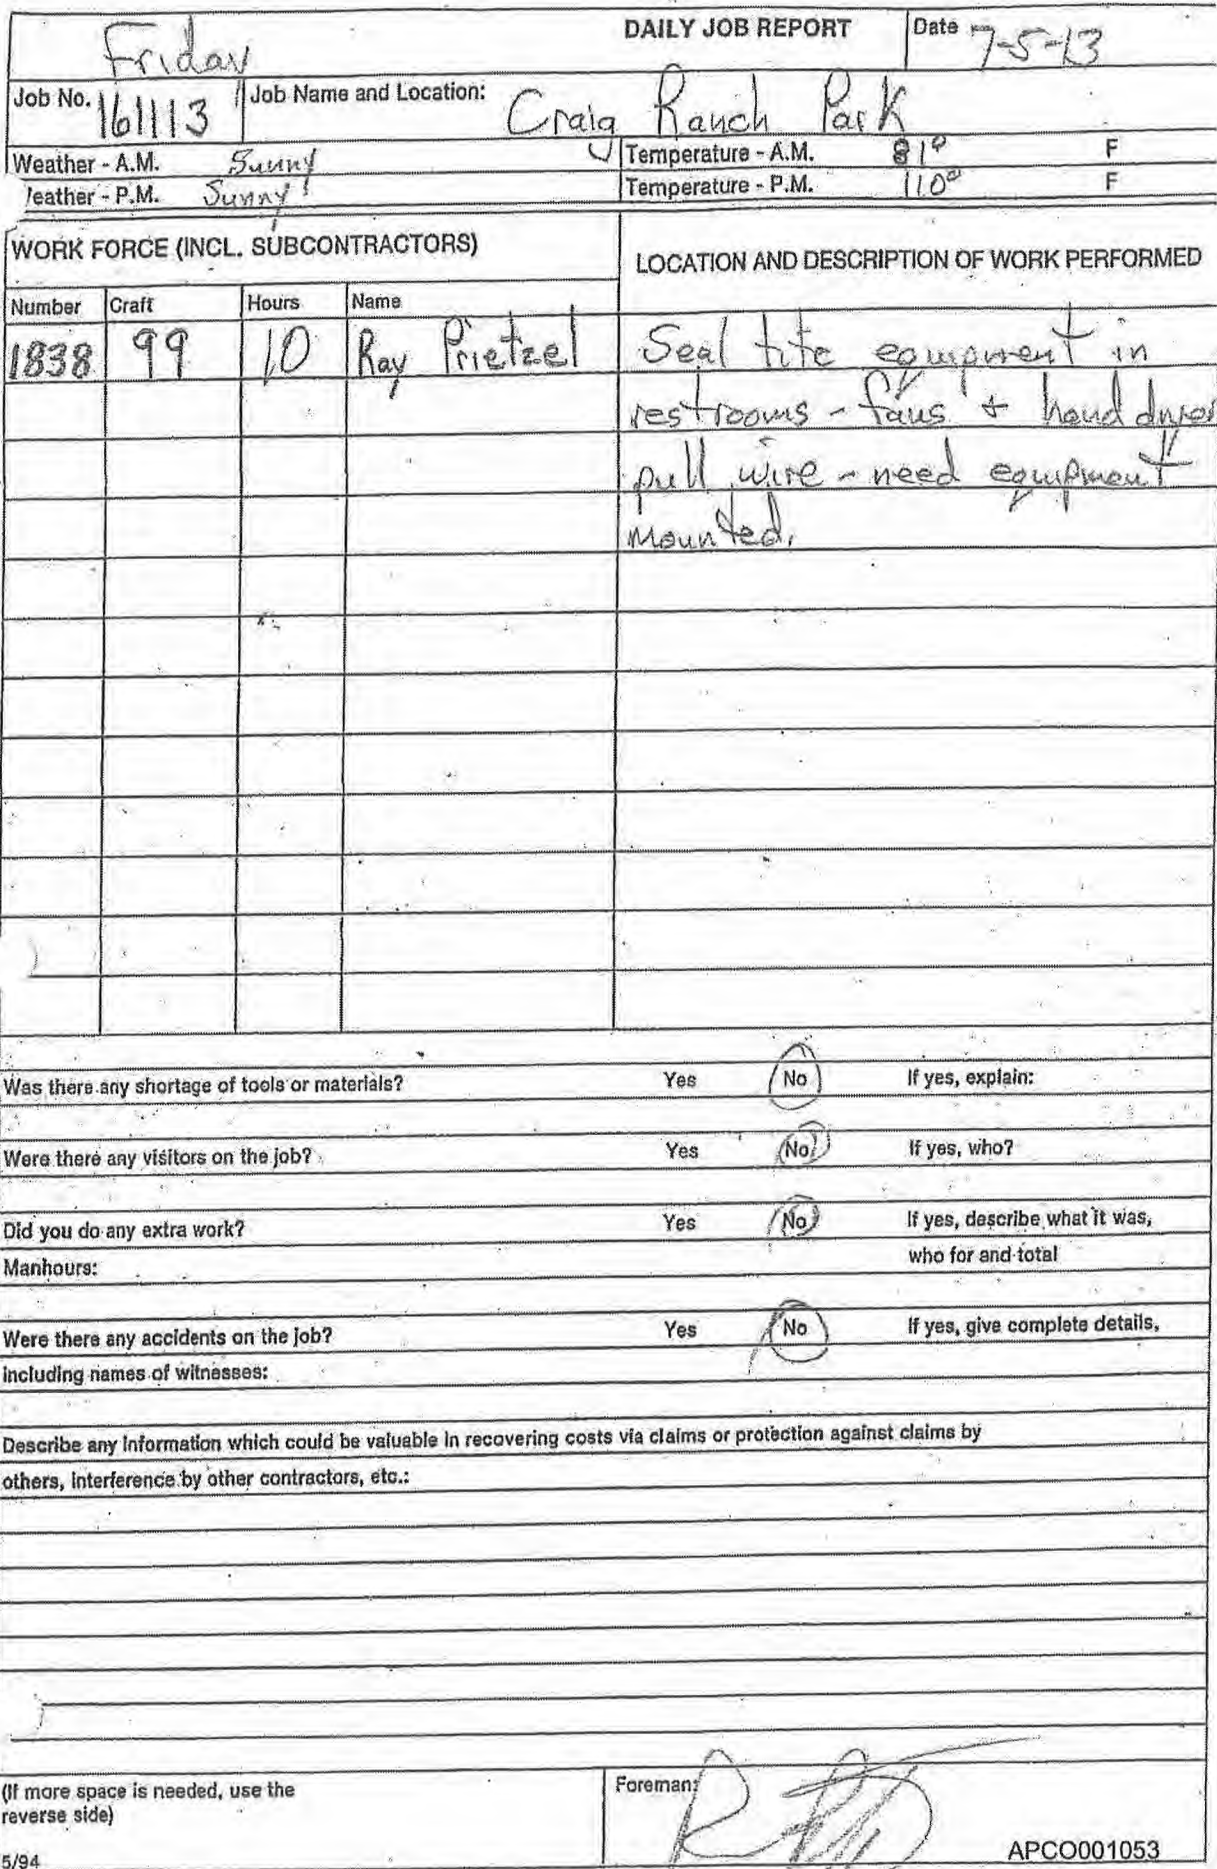 DAILY JOB REPORT
Date 7-5-13
Friday
Job No. 161113
Job Name and Location: Craig Ranch Park
Weather - A.M. Sunny
Temperature - A.M. 81° F
/eather - P.M. Sunny
Temperature - P.M. 110° F
WORK FORCE (INCL. SUBCONTRACTORS)
LOCATION AND DESCRIPTION OF WORK PERFORMED
Number Craft Hours Name
1838 99 10 Ray Prietzel
Seal tite equipment in
restrooms - fans + hand dryer
pull wire - need equipment
mounted.
Was there any shortage of tools or materials? Yes No If yes, explain:
Were there any visitors on the job? Yes No If yes, who?
Did you do any extra work? Yes No If yes, describe what it was,
Manhours: who for and total
Were there any accidents on the job? Yes No If yes, give complete details,
including names of witnesses:
Describe any information which could be valuable in recovering costs via claims or protection against claims by
others, interference by other contractors, etc.:
(If more space is needed, use the
reverse side)
Foreman:
5/94
APCO001053